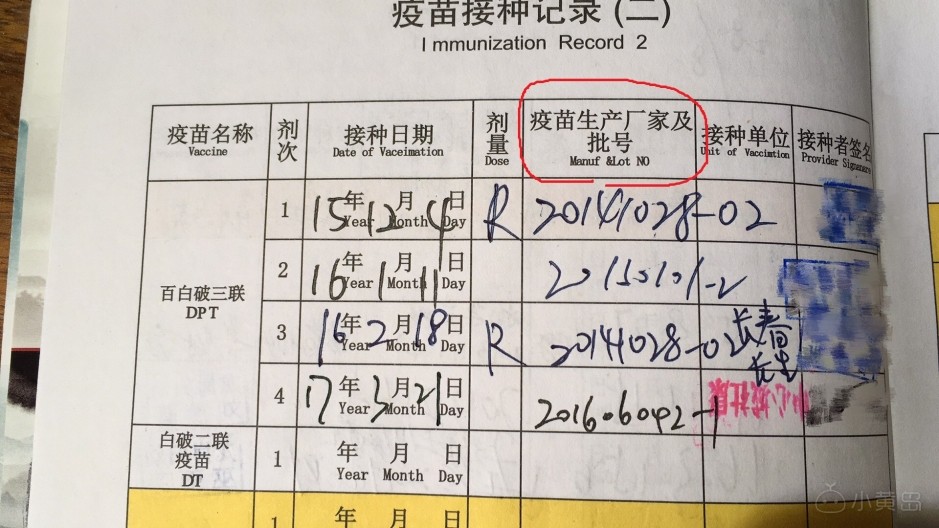 疫苗接种记录(二)
Immunization Record 2
疫苗名称 剂次 接种日期 剂量 疫苗生产厂家及批号 接种单位 接种者签名
Vaccine Date of Vaccimation Dose Manuf &Lot NO Unit of Vaccimtion Provider Signature
百白破三联 DPT
1 15年12月4日 R 20141028-02
Year Month Day
2 16年1月11日
Year Month Day
3 16年2月18日 R 20141028-02 长春长生
Year Month Day
4 17年3月21日 201606042-1
Year Month Day
白破二联疫苗 DT
1 年 月 日
Year Month Day
1 年 月 日
小黄岛